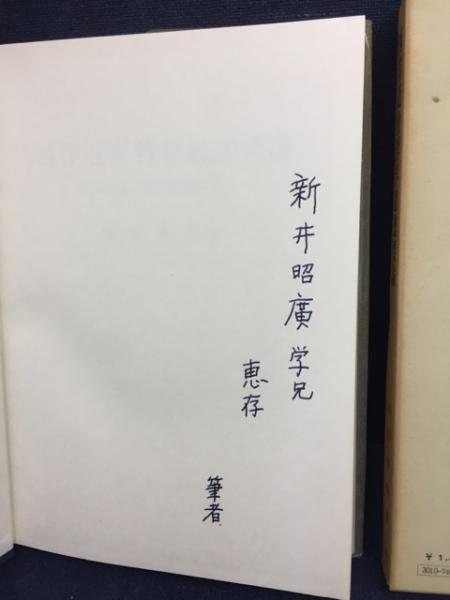 新井昭廣学兄
恵存
筆者
¥1.
3010-